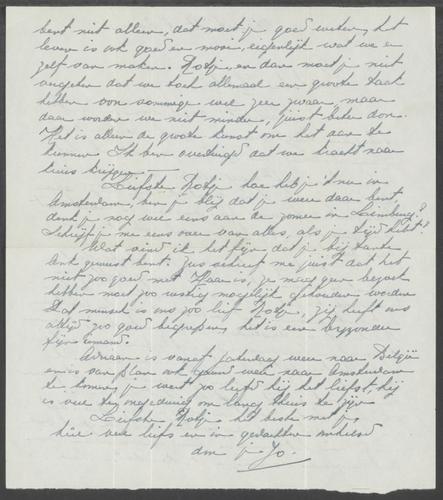 bent niet alleen, dat moet je goed weten, het
leven is ook goed en mooi, eigenlijk wat we er
zelf van maken. en dan moet je niet
vergeten dat we toch allemaal een groote taak
hebben voor sommige wel zeer zwaar, maar
daar worden we niet minder, juist beter door.
Het is alleen de groote kunst om het aan te
kunnen. Ik ben overtuigd dat we kracht naar
kruis krijgen.
Liefste hoe heb je 't nu in
Amsterdam, ben je blij dat je weer daar bent
denk je nog wel eens aan de zomer in Limburg?
Schrijf je me eens over van alles, als je tijd hebt?
Wat vind ik het fijn dat je bij tante
Ank geweest bent. Zus schreef me juist dat het
niet zoo goed met Haar is, ze mag geen bezoek
hebben moet zoo rustig mogelijk gehouden worden
Dat mensch is ons zoo lief zij heeft ons
altijd zoo goed begrepen, het is een bijzonder
fijn iemand.
Adriaan is vanaf Zaterdag weer naar België
en is van plan ook gauw weer naar Amsterdam
te komen, je weet zoo liefst bij het liefst hij
is veel te ongedurig om lang thuis te zijn
Liefste het beste met je,
vele liefs en in gedachten omhelsd
door je Jo.